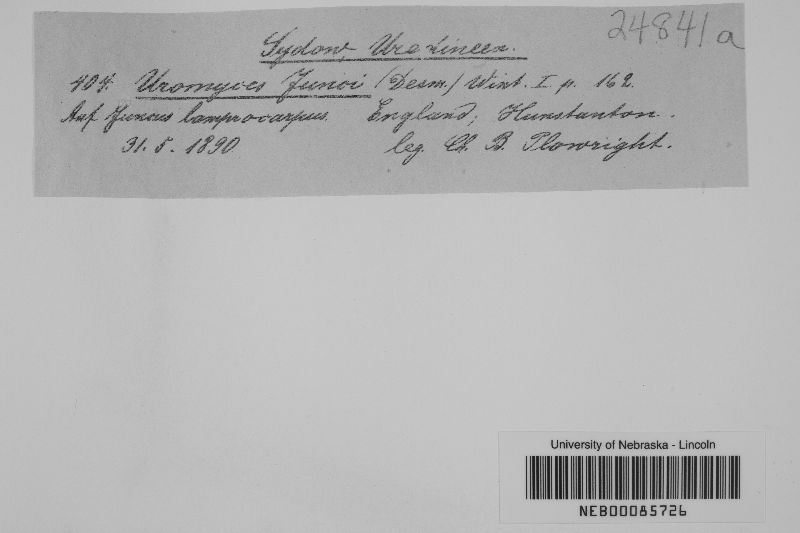 24841a
Sydow, Uredineen.
404. Uromyces Junci (Desm.) Wint. I. p. 162.
Auf Juncus lamprocarpus. England, Hunstanton.
31. 5. 1890 leg. Ch. B. Plowright.
University of Nebraska - Lincoln
NEB00085726